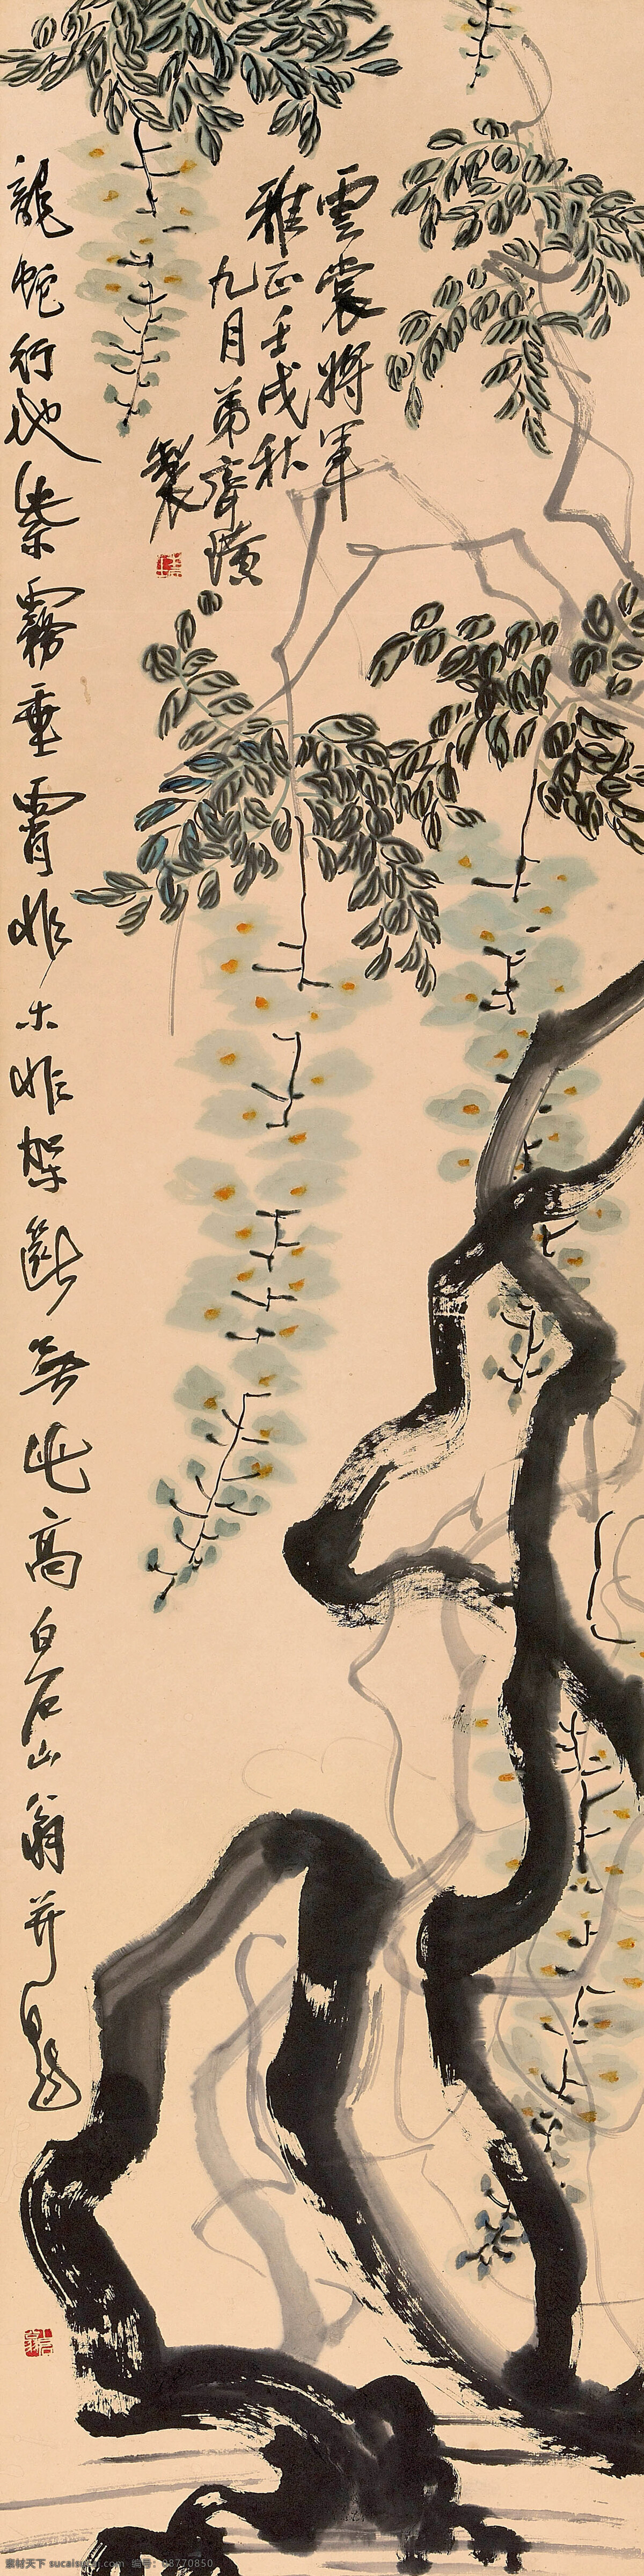 雲裳將軍
雅正壬戌秋
九月弟齊璜
製
龍蛇行地紫霧垂霄非木非架斷無此高白石山翁并題
素材天下 sucaisucai.com 编号：08770850